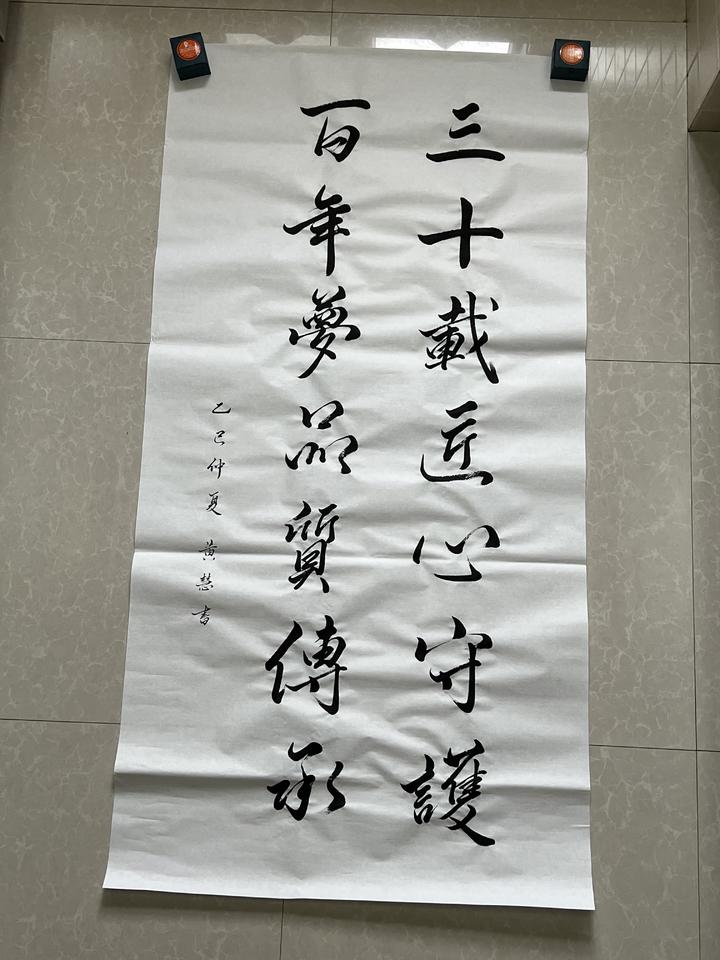 三十載匠心守護
百年夢品質傳承
乙巳仲夏 黄慧書